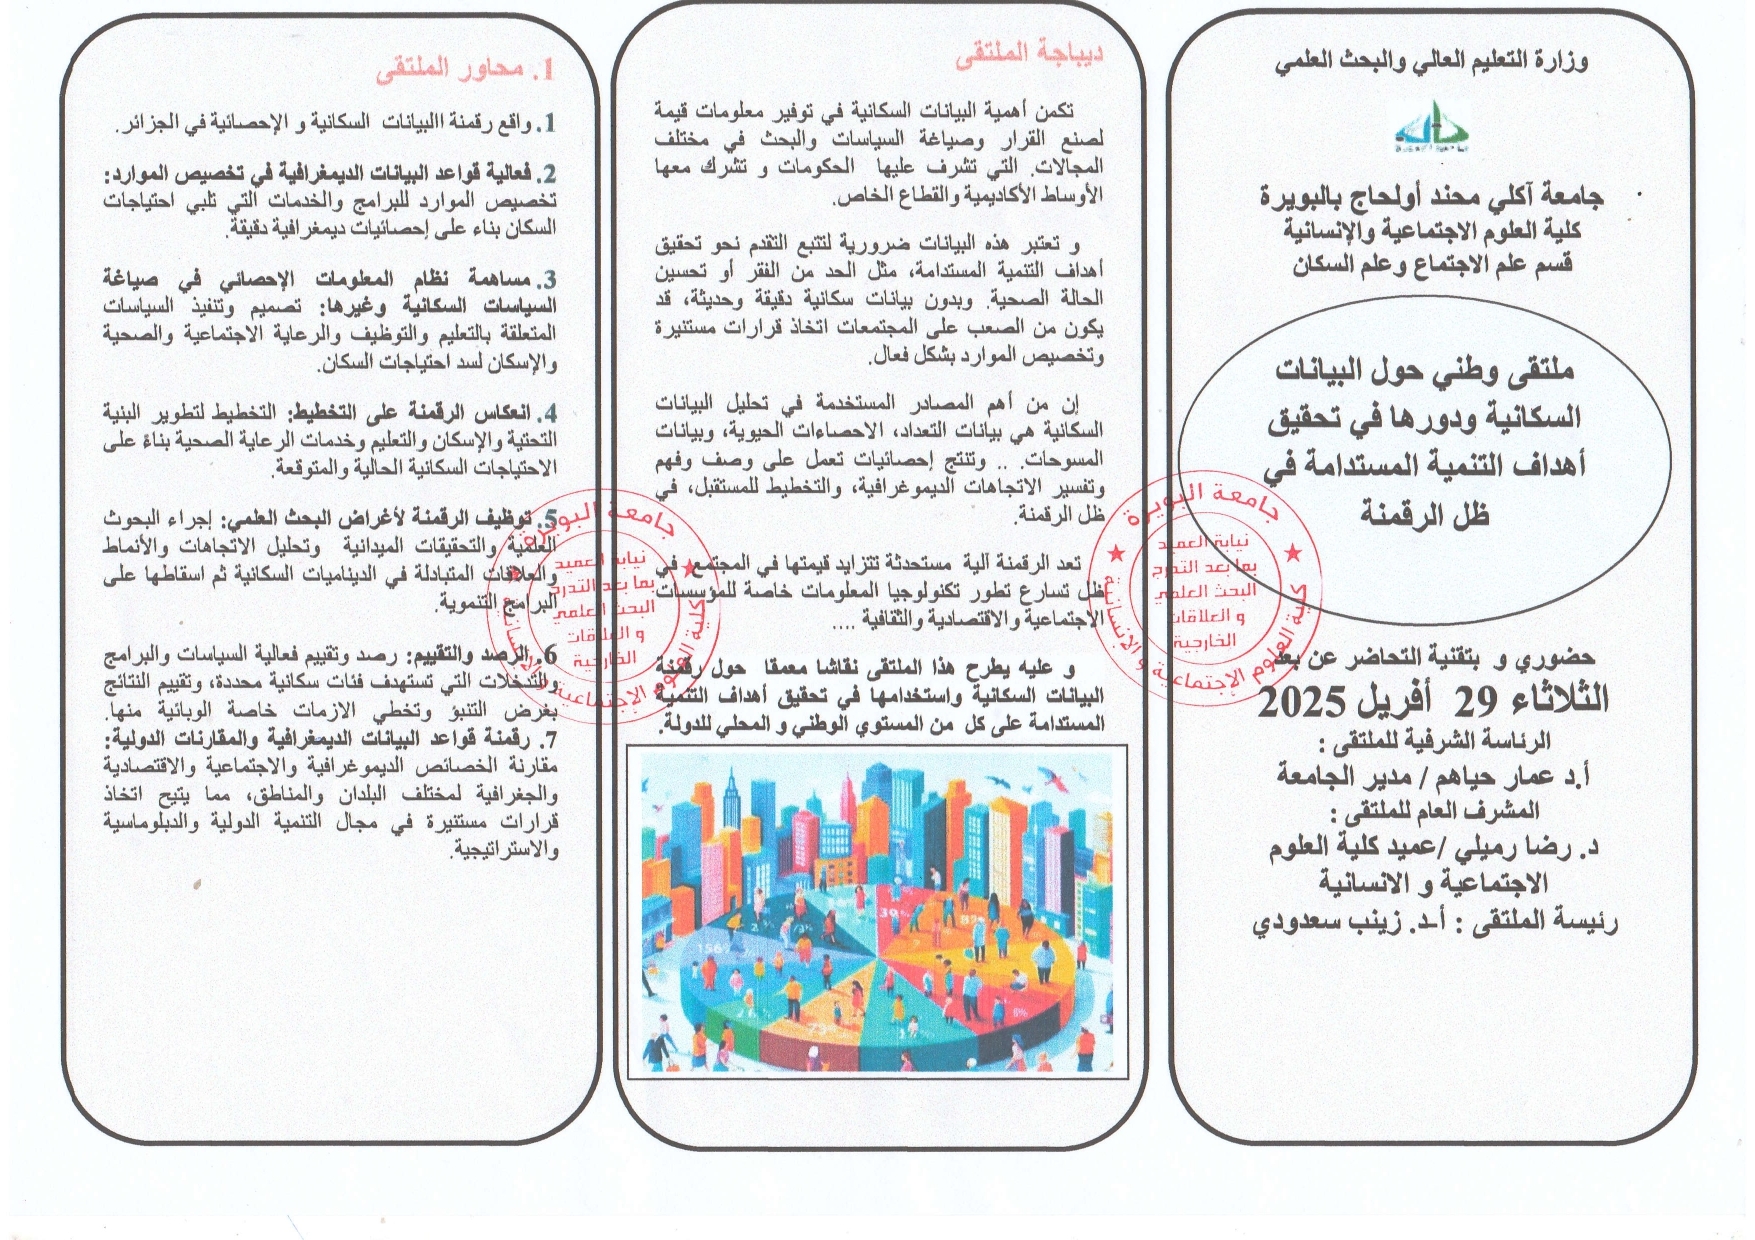 وزارة التعليم العالي والبحث العلمي
جامعة آكلي محند أولحاج بالبويرة
كلية العلوم الاجتماعية والإنسانية
قسم علم الاجتماع وعلم السكان
ملتقى وطني حول البيانات
السكانية ودورها في تحقيق
أهداف التنمية المستدامة في
ظل الرقمنة
حضوري و بتقنية التحاضر عن بعد
الثلاثاء 29 أفريل 2025
الرئاسة الشرفية للملتقى :
أ.د عمار حياهم / مدير الجامعة
المشرف العام للملتقى :
د. رضا رميلي /عميد كلية العلوم
الاجتماعية و الانسانية
رئيسة الملتقى : أ-د. زينب سعدودي
جامعة البويرة
كلية العلوم الإجتماعية و الإنسانية
نيابة العميد
بما بعد التدرج
البحث العلمي
و العلاقات
الخارجية
ديباجة الملتقى
تكمن أهمية البيانات السكانية في توفير معلومات قيمة
لصنع القرار وصياغة السياسات والبحث في مختلف
المجالات. التي تشرف عليها الحكومات و تشرك معها
الأوساط الأكاديمية والقطاع الخاص.
و تعتبر هذه البيانات ضرورية لتتبع التقدم نحو تحقيق
أهداف التنمية المستدامة، مثل الحد من الفقر أو تحسين
الحالة الصحية. وبدون بيانات سكانية دقيقة وحديثة، قد
يكون من الصعب على المجتمعات اتخاذ قرارات مستنيرة
وتخصيص الموارد بشكل فعال.
إن من أهم المصادر المستخدمة في تحليل البيانات
السكانية هي بيانات التعداد، الاحصاءات الحيوية، وبيانات
المسوحات. .. وتنتج إحصائيات تعمل على وصف وفهم
وتفسير الاتجاهات الديموغرافية، والتخطيط للمستقبل، في
ظل الرقمنة.
تعد الرقمنة آلية مستحدثة تتزايد قيمتها في المجتمع في
ظل تسارع تطور تكنولوجيا المعلومات خاصة للمؤسسات
الاجتماعية والاقتصادية والثقافية ....
و عليه يطرح هذا الملتقى نقاشا معمقا حول رقمنة
البيانات السكانية واستخدامها في تحقيق أهداف التنمية
المستدامة على كل من المستوي الوطني و المحلي للدولة.
39%
جامعة البويرة
كلية العلوم الإجتماعية و الإنسانية
نيابة العميد
بما بعد التدرج
البحث العلمي
و العلاقات
الخارجية
1. محاور الملتقى
1. واقع رقمنة االبيانات السكانية و الإحصائية في الجزائر.
2. فعالية قواعد البيانات الديمغرافية في تخصيص الموارد:
تخصيص الموارد للبرامج والخدمات التي تلبي احتياجات
السكان بناء على إحصائيات ديمغرافية دقيقة.
3. مساهمة نظام المعلومات الإحصائي في صياغة
السياسات السكانية وغيرها: تصميم وتنفيذ السياسات
المتعلقة بالتعليم والتوظيف والرعاية الاجتماعية والصحية
والإسكان لسد احتياجات السكان.
4. انعكاس الرقمنة على التخطيط: التخطيط لتطوير البنية
التحتية والإسكان والتعليم وخدمات الرعاية الصحية بناءً على
الاحتياجات السكانية الحالية والمتوقعة.
5. توظيف الرقمنة لأغراض البحث العلمي: إجراء البحوث
العلمية والتحقيقات الميدانية وتحليل الاتجاهات والأنماط
والعلاقات المتبادلة في الديناميات السكانية ثم اسقاطها على
البرامج التنموية.
6. الرصد والتقييم: رصد وتقييم فعالية السياسات والبرامج
والتدخلات التي تستهدف فئات سكانية محددة، وتقييم النتائج
بغرض التنبؤ وتخطي الازمات خاصة الوبائية منها.
7. رقمنة قواعد البيانات الديمغرافية والمقارنات الدولية:
مقارنة الخصائص الديموغرافية والاجتماعية والاقتصادية
والجغرافية لمختلف البلدان والمناطق، مما يتيح اتخاذ
قرارات مستنيرة في مجال التنمية الدولية والدبلوماسية
والاستراتيجية.